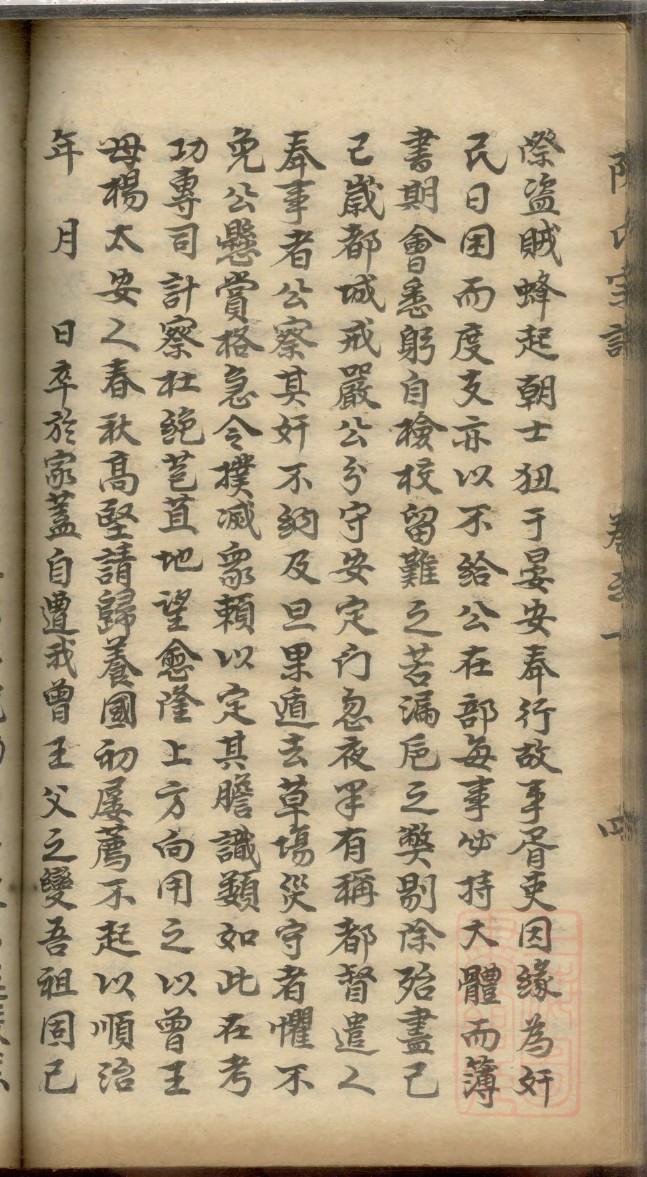 際盜賊蜂起朝士狃于晏安奉行故事胥吏因緣為奸
民日困而度支亦以不給公在部每事必持大體而薄
書期會悉躬自檢校留難之苦漏卮之弊剔除殆盡己
己歲都城戒嚴公分守安定門忽夜半有稱都督遣人
奉事者公察其奸不納及旦果遁去草場災守者懼不
免公懸賞格急令撲滅眾賴以定其膽識類如此在考
功專司計察杜絕苞苴地望愈隆上方向用之以曾王
母楊太安人春秋高堅請歸養國初屢薦不起以順治
年　月　日卒於家蓋自遭我曾王父之變吾祖固已